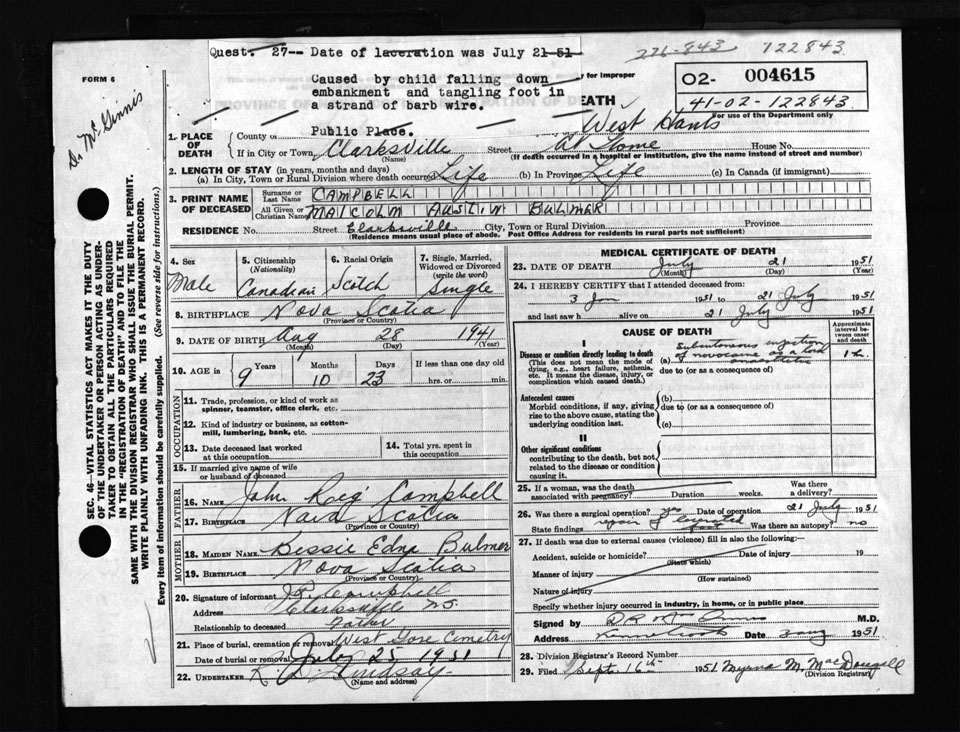 Quest. 27-- Date of laceration was July 21-51
Caused by child falling down
embankment and tangling foot in
a strand of barb wire.
Public Place.
for improper
221-843 122843
O2- 004615
41-02-122843
For use of the Department only
FORM 6
Dr McGinnis
EATH
SEC. 46—VITAL STATISTICS ACT MAKES IT THE DUTY
OF THE UNDERTAKER OR PERSON ACTING AS UNDER-
TAKER TO OBTAIN ALL THE PARTICULARS REQUIRED
IN THE "REGISTRATION OF DEATH" AND TO FILE THE
SAME WITH THE DIVISION REGISTRAR WHO SHALL ISSUE THE BURIAL PERMIT.
WRITE PLAINLY WITH UNFADING INK. THIS IS A PERMANENT RECORD.
Every item of information should be carefully supplied. (See reverse side for instructions.)
1. PLACE OF DEATH
County of West Hants
If in City or Town, Clarksville Street at Home House No.
(Name) (If death occurred in a hospital or institution, give the name instead of street and number)
2. LENGTH OF STAY (in years, months and days)
(a) In City, Town or Rural Division where death occurred Life (b) In Province Life (c) In Canada (if immigrant)
3. PRINT NAME OF DECEASED
Surname or Last Name CAMPBELL
All Given or Christian Names MALCOLM AUSTIN BULMER
RESIDENCE No. Street Clarksville City, Town or Rural Division Province
(Residence means usual place of abode. Post Office Address for residents in rural parts not sufficient)
4. Sex Male
5. Citizenship (Nationality) Canadian
6. Racial Origin Scotch
7. Single, Married, Widowed or Divorced (write the word) Single
8. BIRTHPLACE Nova Scotia
(Province or Country)
9. DATE OF BIRTH Aug 28 1941
(Month) (Day) (Year)
10. AGE in 9 Years 10 Months 23 Days If less than one day old
hrs. or min.
OCCUPATION
11. Trade, profession, or kind of work as
spinner, teamster, office clerk, etc.
12. Kind of industry or business, as cotton-
mill, lumbering, bank, etc.
13. Date deceased last worked
at this occupation
14. Total yrs. spent in
this occupation
15. If married give name of wife
or husband of deceased
FATHER
16. NAME John Reig Campbell
17. BIRTHPLACE Nova Scotia
(Province or Country)
MOTHER
18. MAIDEN NAME Bessie Edna Bulmer
19. BIRTHPLACE Nova Scotia
(Province or Country)
20. Signature of informant J R Campbell
Address Clarksville N.S.
Relationship to deceased Father
21. Place of burial, cremation or removal West Gore Cemetery
Date of burial or removal July 25 1951
22. UNDERTAKER Lindsay
(Name and address)
MEDICAL CERTIFICATE OF DEATH
23. DATE OF DEATH July 21 1951
(Month) (Day) (Year)
24. I HEREBY CERTIFY that I attended deceased from:
3 Jan 1951 to 21 July 1951
and last saw h alive on 21 July 1951
CAUSE OF DEATH
Approximate interval between onset and death
I
Disease or condition directly leading to death
(This does not mean the mode of
dying, e.g., heart failure, asthenia,
etc. It means the disease, injury, or
complication which caused death.)
(a) Subcutaneous injection
of novocaine as a local
anaesthetic
due to (or as a consequence of)
Antecedent causes
Morbid conditions, if any, giving
rise to the above cause, stating the
underlying condition last.
(b)
due to (or as a consequence of)
(c)
II
Other significant conditions
contributing to the death, but not
related to the disease or condition
causing it.
25. If a woman, was the death
associated with pregnancy? Duration weeks. Was there
a delivery?
26. Was there a surgical operation? yes Date of operation 21 July 1951
State findings repair of lacerated foot Was there an autopsy? no
27. If death was due to external causes (violence) fill in also the following:—
Accident, suicide or homicide? Date of injury 19
(State which)
Manner of injury
(How sustained)
Nature of injury
Specify whether injury occurred in industry, in home, or in public place
Signed by M.D.
Address Kennetcook Date 3 aug 1951
28. Division Registrar's Record Number
29. Filed Sept. 16th 1951 Myrna M. MacDougall
(Division Registrar)